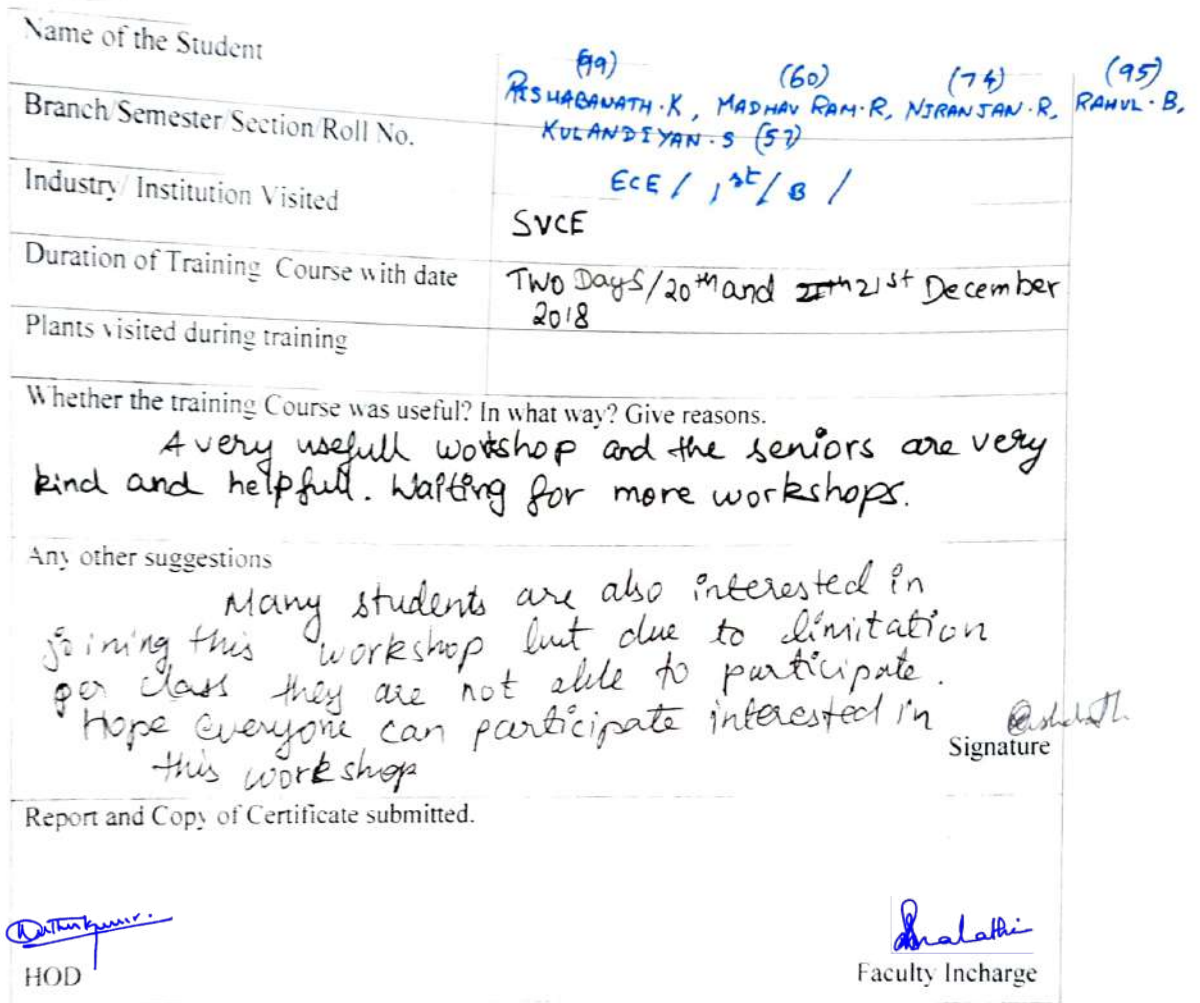 Name of the Student
(99) (60) (74) (95)
RISHABANATH.K, MADHAV RAM.R, NIRANJAN.R, RAHUL.B,
KULANDIYAN.S (57)
Branch/Semester/Section/Roll No.
ECE / 1st / B /
Industry/ Institution Visited
SVCE
Duration of Training Course with date
Two Days/20th and 21st December
2018
Plants visited during training
Whether the training Course was useful? In what way? Give reasons.
A very usefull workshop and the seniors are very
kind and helpfull. Waiting for more workshops.
Any other suggestions
Many students are also interested in
joining this workshop but due to limitation
per class they are not able to participate.
Hope everyone can participate interested in
this workshop
Signature
Report and Copy of Certificate submitted.
HOD
Faculty Incharge